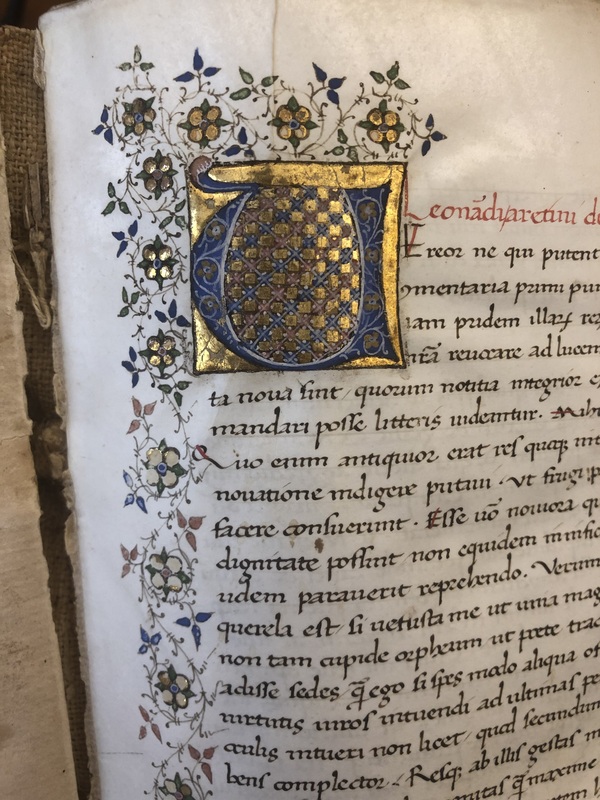 Leonādi aretini de
Vereor ne qui putent
omentaria primi pun
iam pridem illaꝝ re
nr̄ā reuocare ad lucem
ta noua sint quorum notitia integrior e
mandari posse litteris uideantur. Nihi
Quo enim antiquior erat res quaqꝫ int
nouatione indigere putaui. Vt frugi p
facere consuerunt. Esse uō nouiora qu
dignitate possint non equidem ininfic
uidem parauerit reprehendo. Verum
querela est si uetusta me ut una mag
non tam cupide orpheum ut poete trad
adisse sedes q̄ ego si spes modo aliqua of
uirtutis uiros intuendi ad ultimas pe
oculis intueri non licet, quod secundum
bens complector. Resqꝫ ab illis gestas m
q̄ maxime